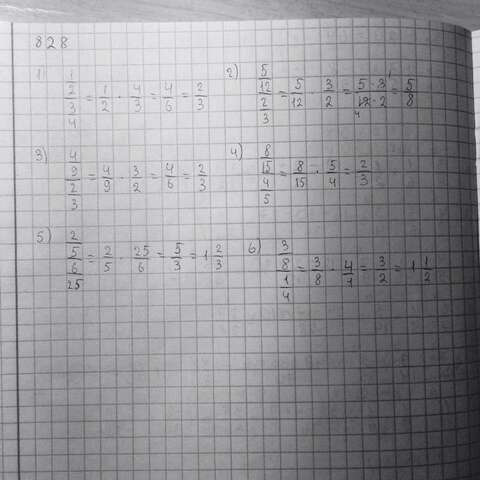 828
1) 1/2 / 3/4 = 1/2 · 4/3 = 4/6 = 2/3
2) 5/12 / 2/3 = 5/12 · 3/2 = 5·3 1/12·2 4 = 5/8
3) 4/9 / 2/3 = 4/9 · 3/2 = 4/6 = 2/3
4) 8/15 / 4/5 = 8/15 · 5/4 = 2/3
5) 2/5 / 6/25 = 2/5 · 25/6 = 5/3 = 1 2/3
6) 3/8 / 1/4 = 3/8 · 4/1 = 3/2 = 1 1/2